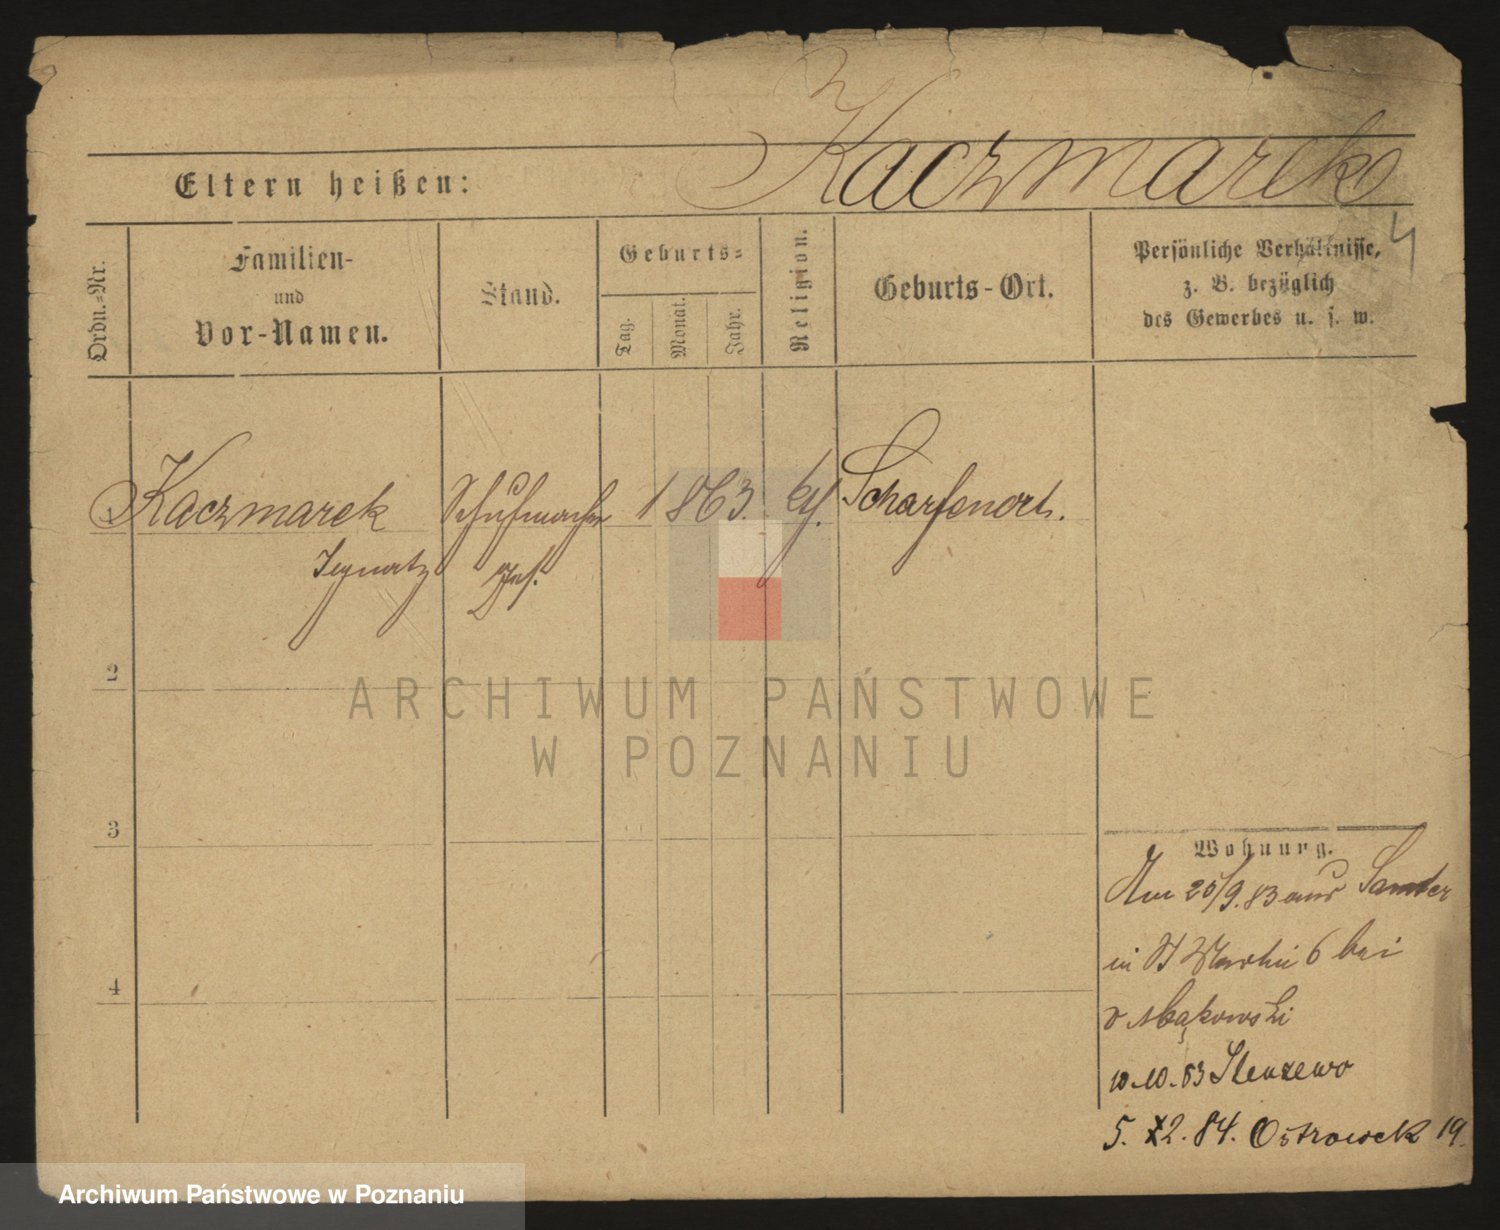 Kaczmarek
Eltern heißen:
4
Ordn.=Nr.
Familien-
und
Vor-Namen.
Stand.
Geburts=
Tag.
Monat.
Jahr.
Religion.
Geburts-Ort.
Persönliche Verhältnisse,
z. B. bezüglich
des Gewerbes u. s. w.
1 Kaczmarek Schuhmacher 1863. Scharfenort.
Ignatz Ges.
2
3
4
ARCHIWUM PAŃSTWOWE
W POZNANIU
Wohnung.
Am 25/9.83 aus Samter
in St Martin 6 bei
10.10.83 Stenzewo
5. 2. 84. Ostrowek 19.
Archiwum Państwowe w Poznaniu